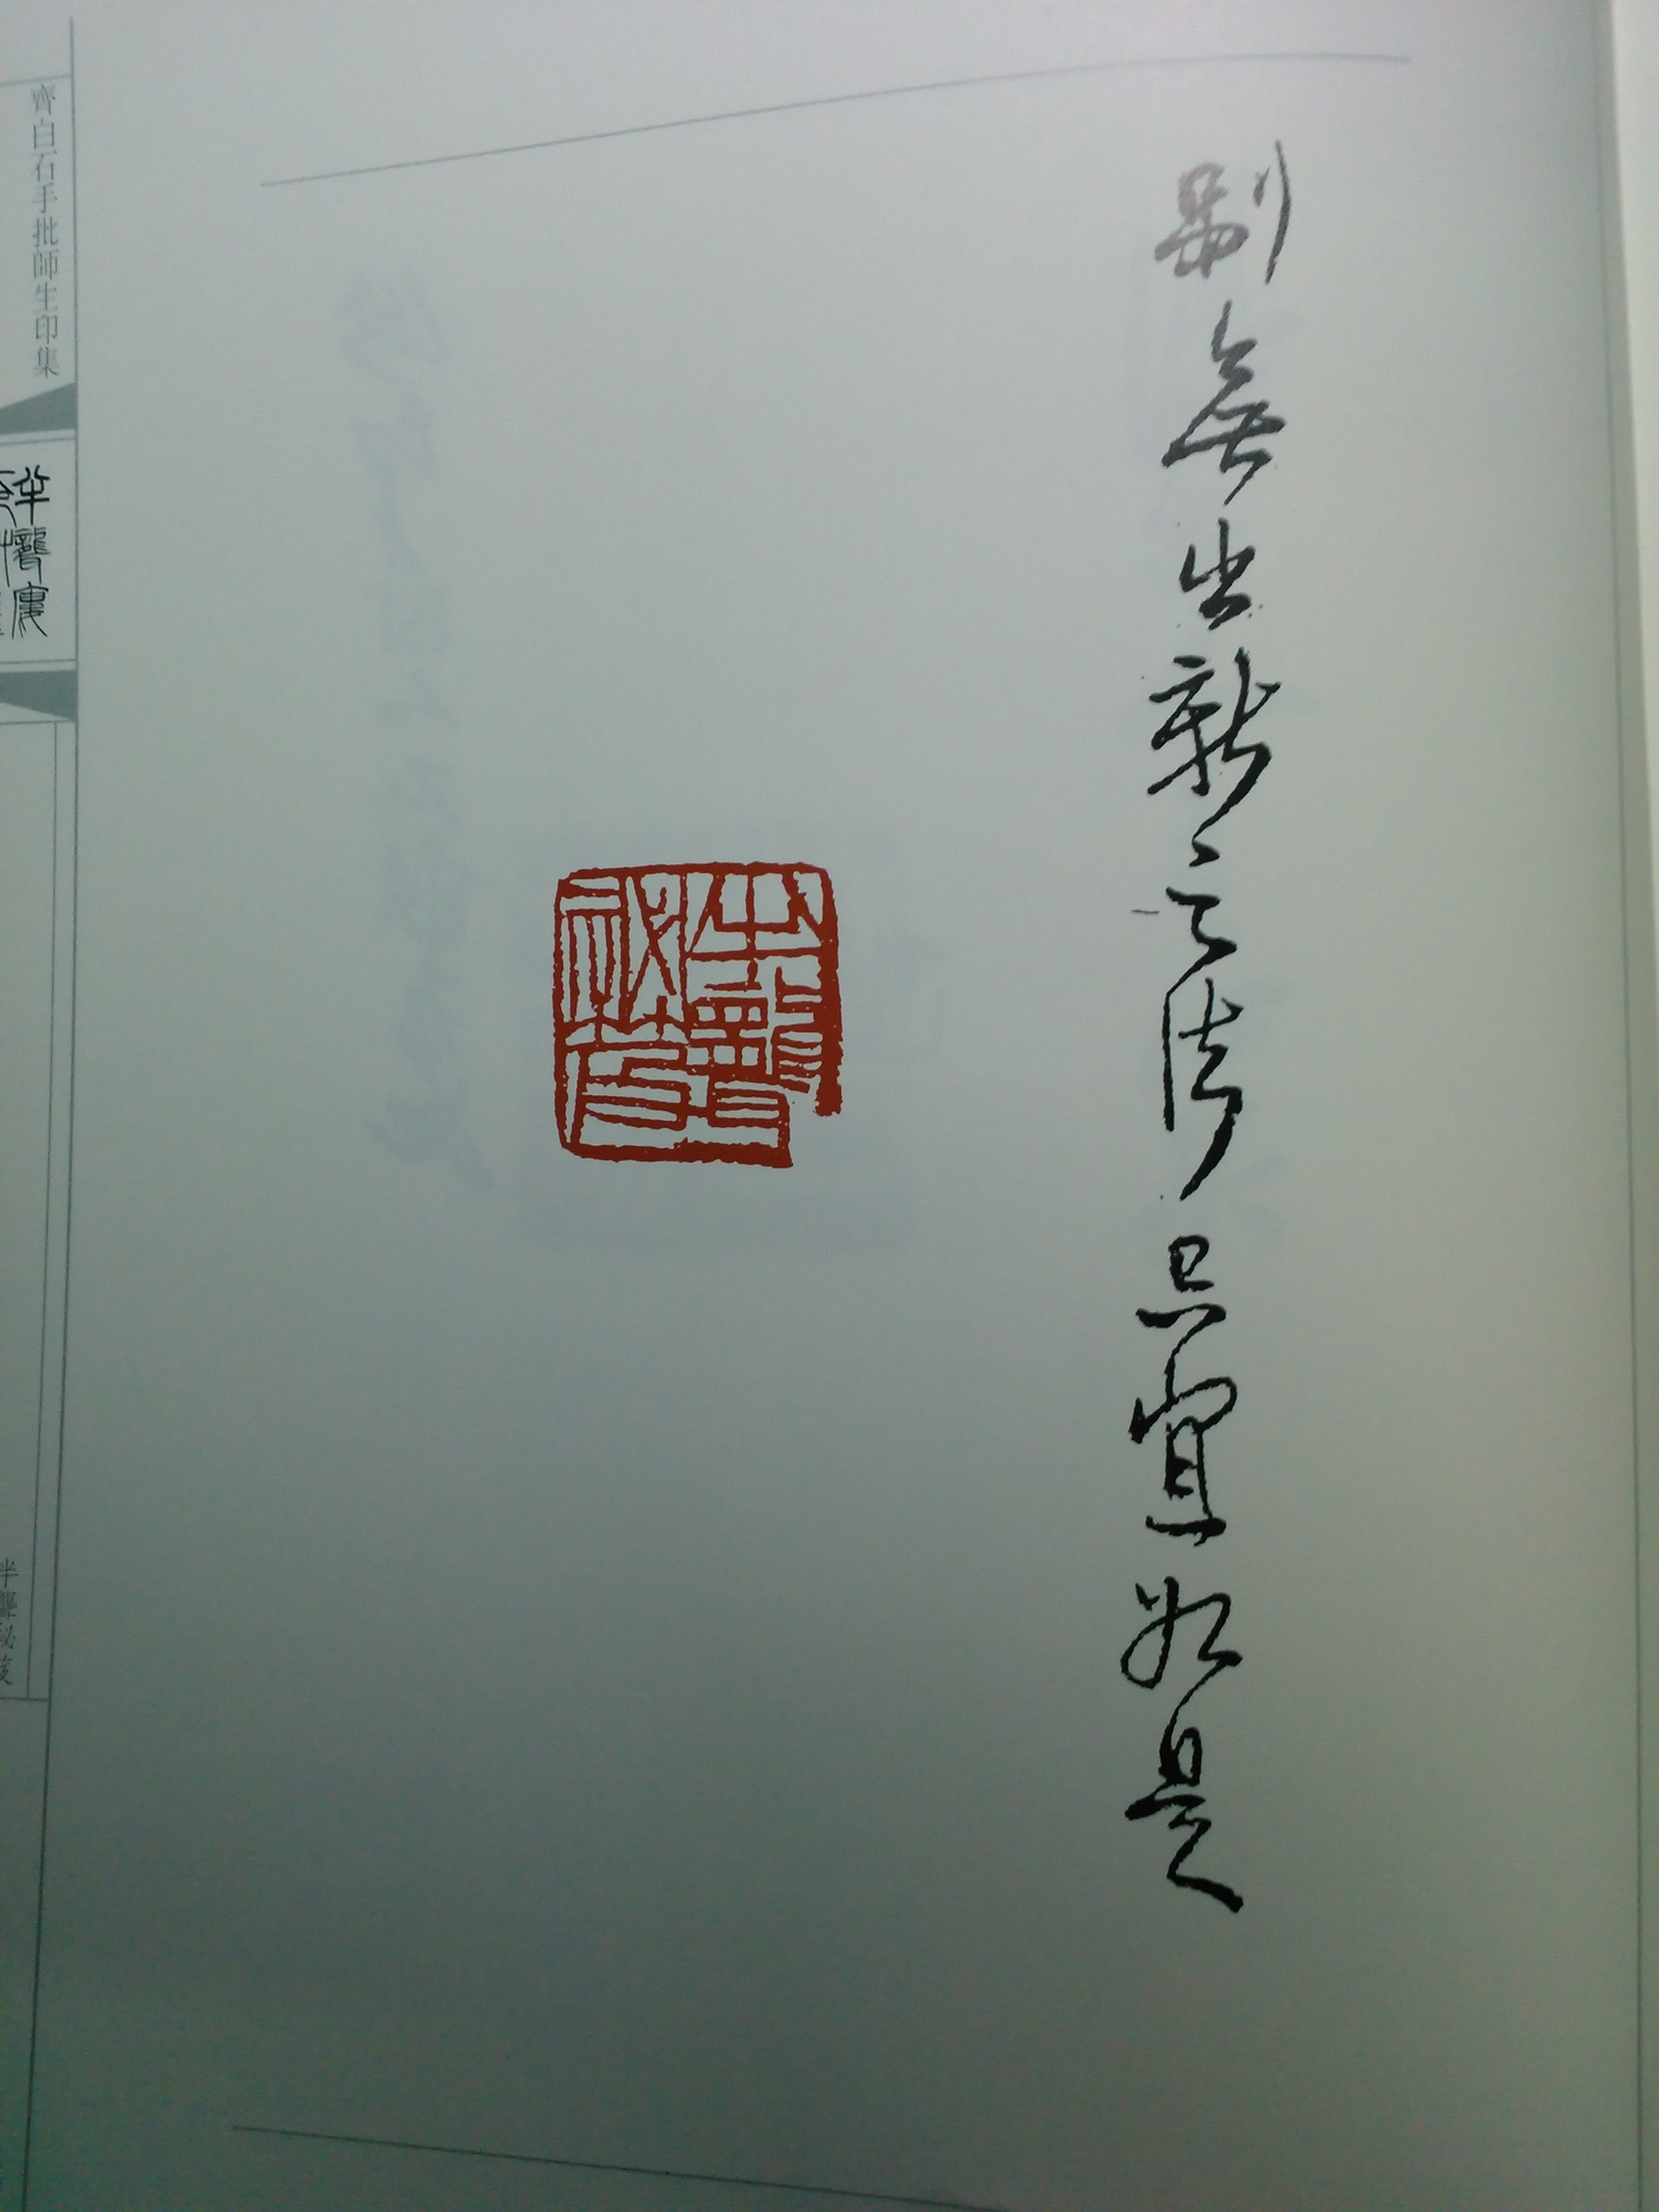 別無出新之法只宜如是
半聾秘笈
齊白石手批師生印集
半聾樓
半聾秘笈